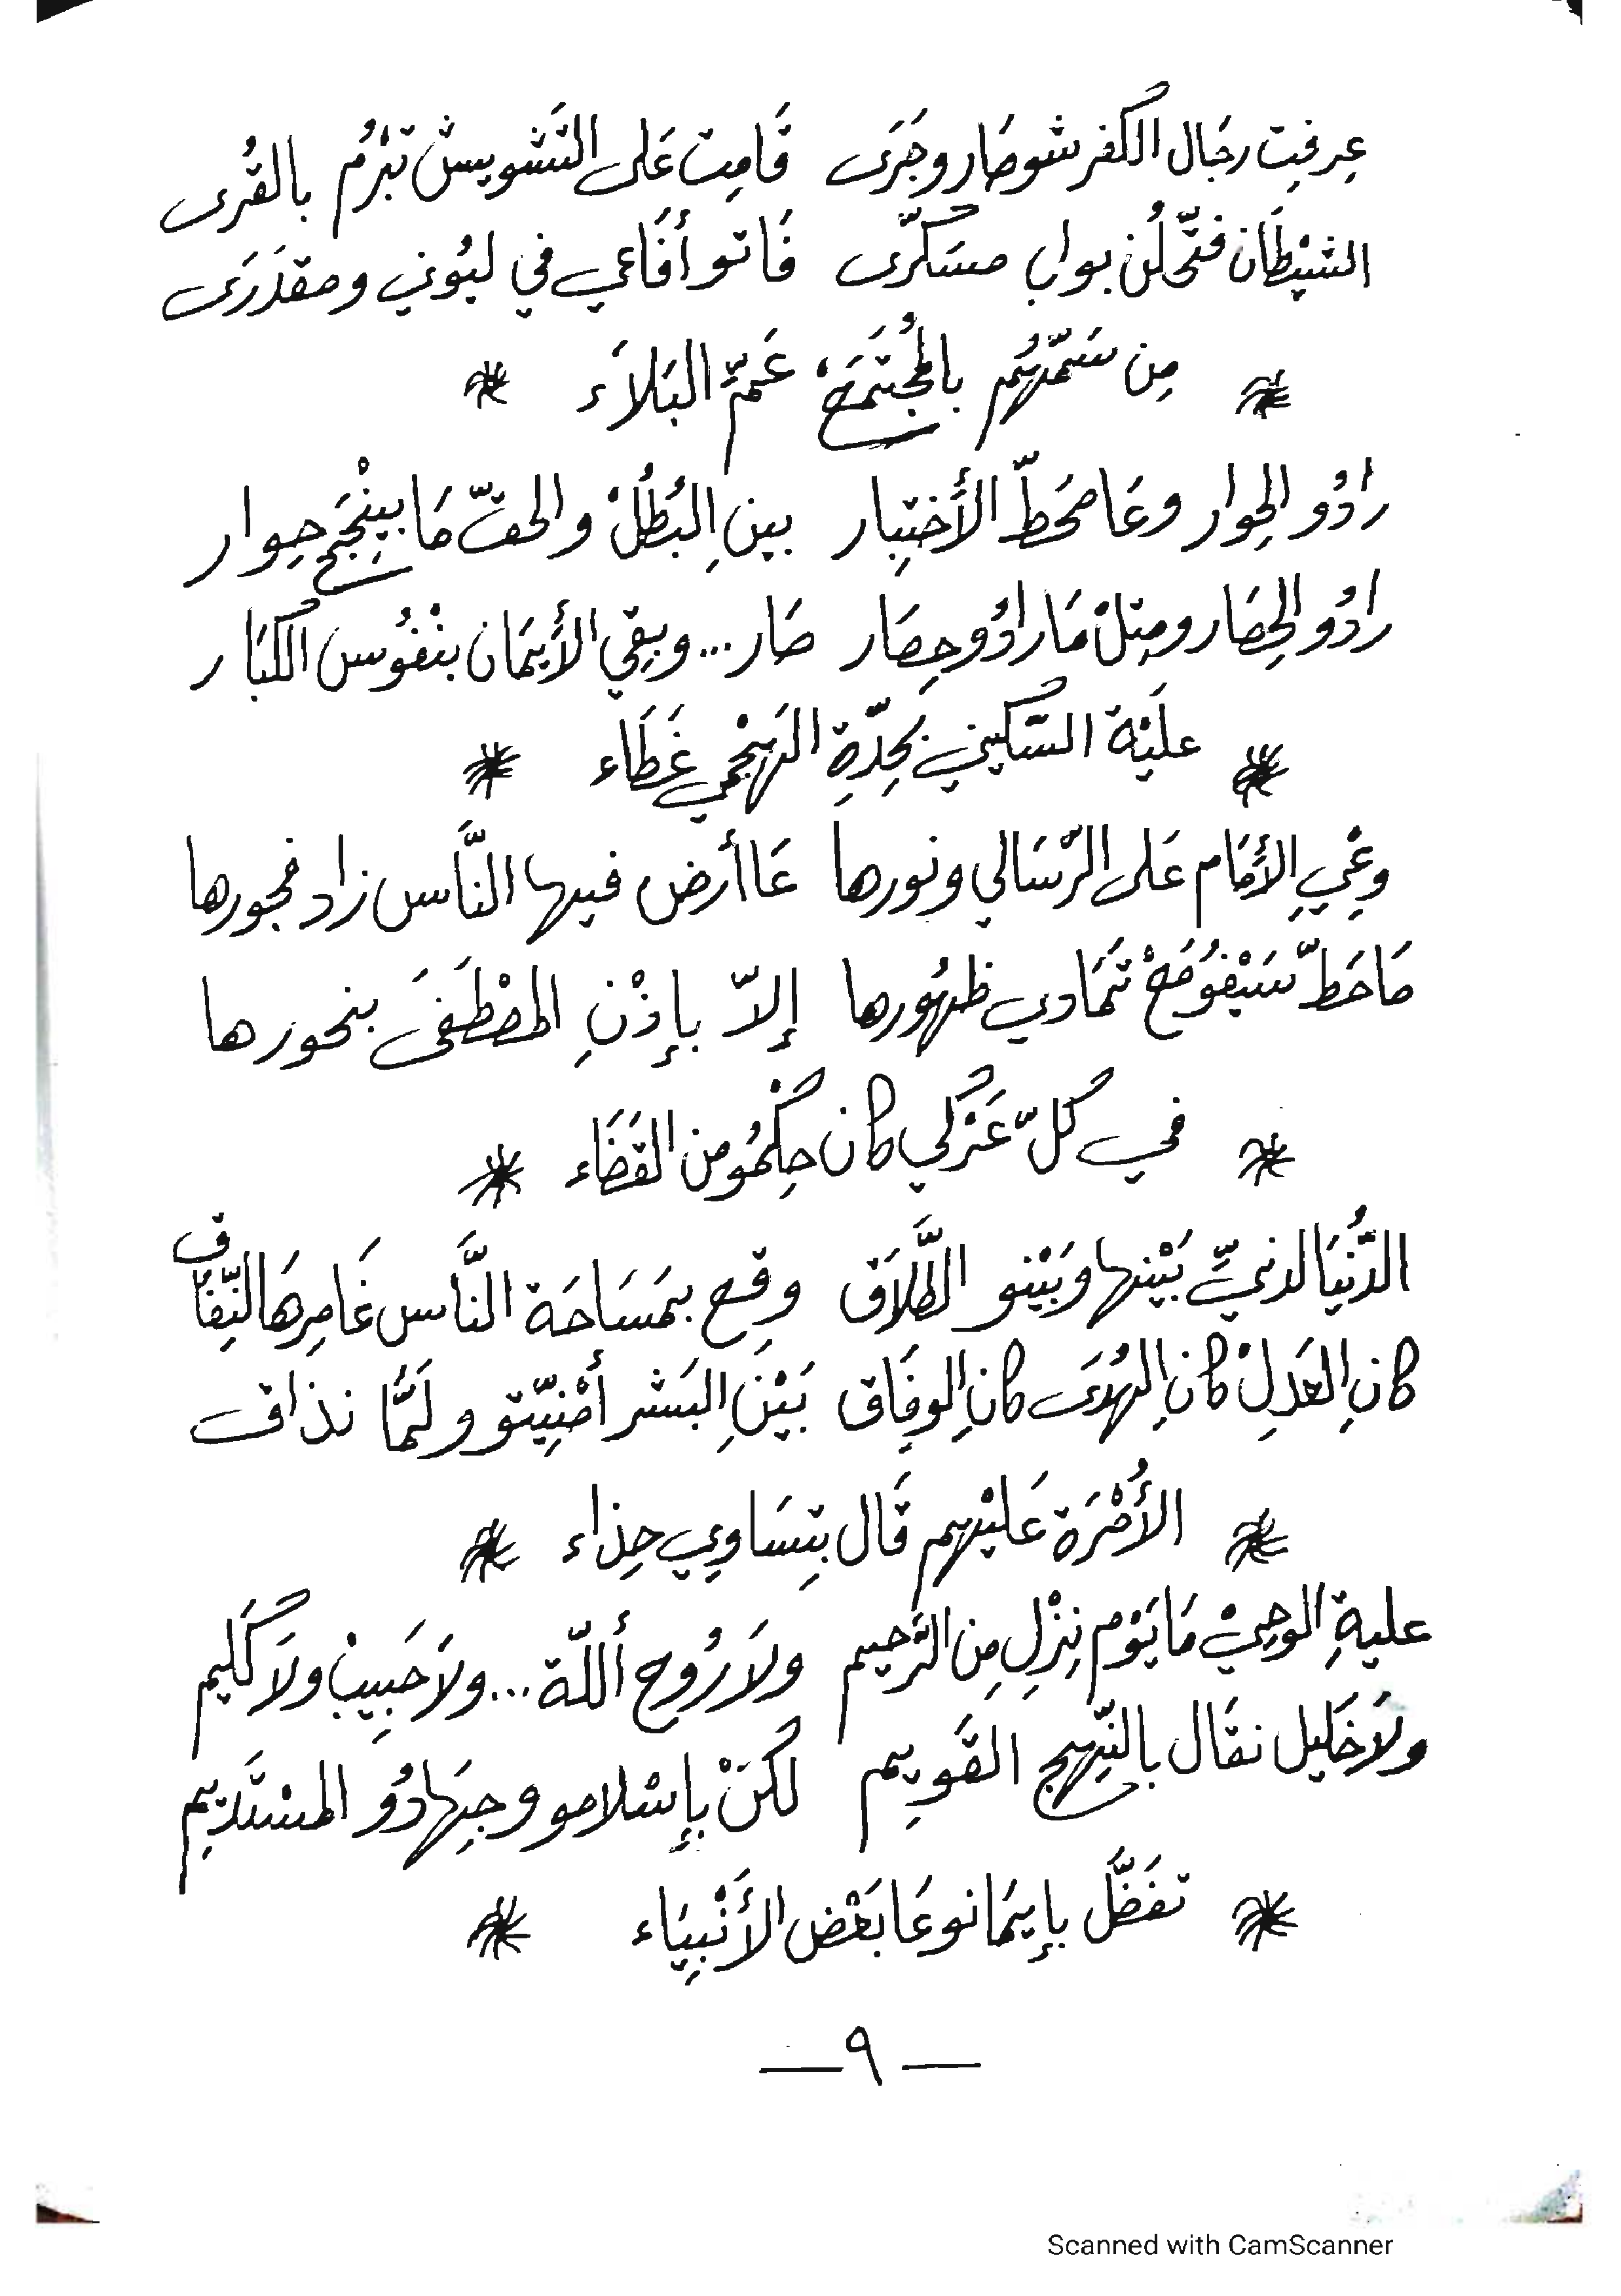 عِرفِت رجَال الكفر شو صَار وجَرَى قَامِت عَلى التَشويش تبْرُم بالقُرى
الشيْطَان فتّحلُن بواب مسَكرّى فَاتو أفَاعي في ليُوني ومقدَرَى
* مِن سَمّهُم بالمُجتمَعْ عَمِّ البَلاَء *
رادُو الحِوار وعَا محَطّ الأَختِبار بين البُطُلْ والحقّ مَا بيِنْجَح حِوار
رادُو الحِصَار ومِتِلْ مَا رادُو حِصَار صَار... وبقِي الأَيمَان بنْفُوس الكبَار
* عليَة السّكيني بحِدّةِ النهْجي غَطَاء *
وعْيِ الأَمَام عَلى الرّسَالي ونورها عَا أرض فيها النَّاس زاد فجورها
مَا حَطّ سَيْفو مَعْ تمَادي ظهُورها إلاّ بإذْنِ المصْطَفَى بنحورها
* في كُلّ عَزلي كان حِكْمُو من القَضَاء *
الدّنيَا الدنيِّ بَيْنها وبَيْنو الطَّلاَق وقِع بمَسَاحَة النَّاس غَامِرهَا النِّفَاق
كانِ العَدِلْ كانِ الهُدَى كانِ الوِفَاق بَيْنِ البَشر أمْنِيّتو ولَمَّا نذاق
* الأُمْرَة عَليْهم قَال بتِسَاوِي حِذاء *
عليةِ الوحِيْ مَا يَوْم نِزْلِ مِن الرَّحيم ولاَ رُوح أللّة... ولاَ حَبِيبْ ولاَ كَليم
ولاَ خَليل نقَال بالنِّهج القَويم لكنْ بإسْلامو وجِهَادُو المستَديم
* تفَضَّل بإيمَانو عَا بَعْض الأَنْبِيَاء *
— ٩ —
Scanned with CamScanner